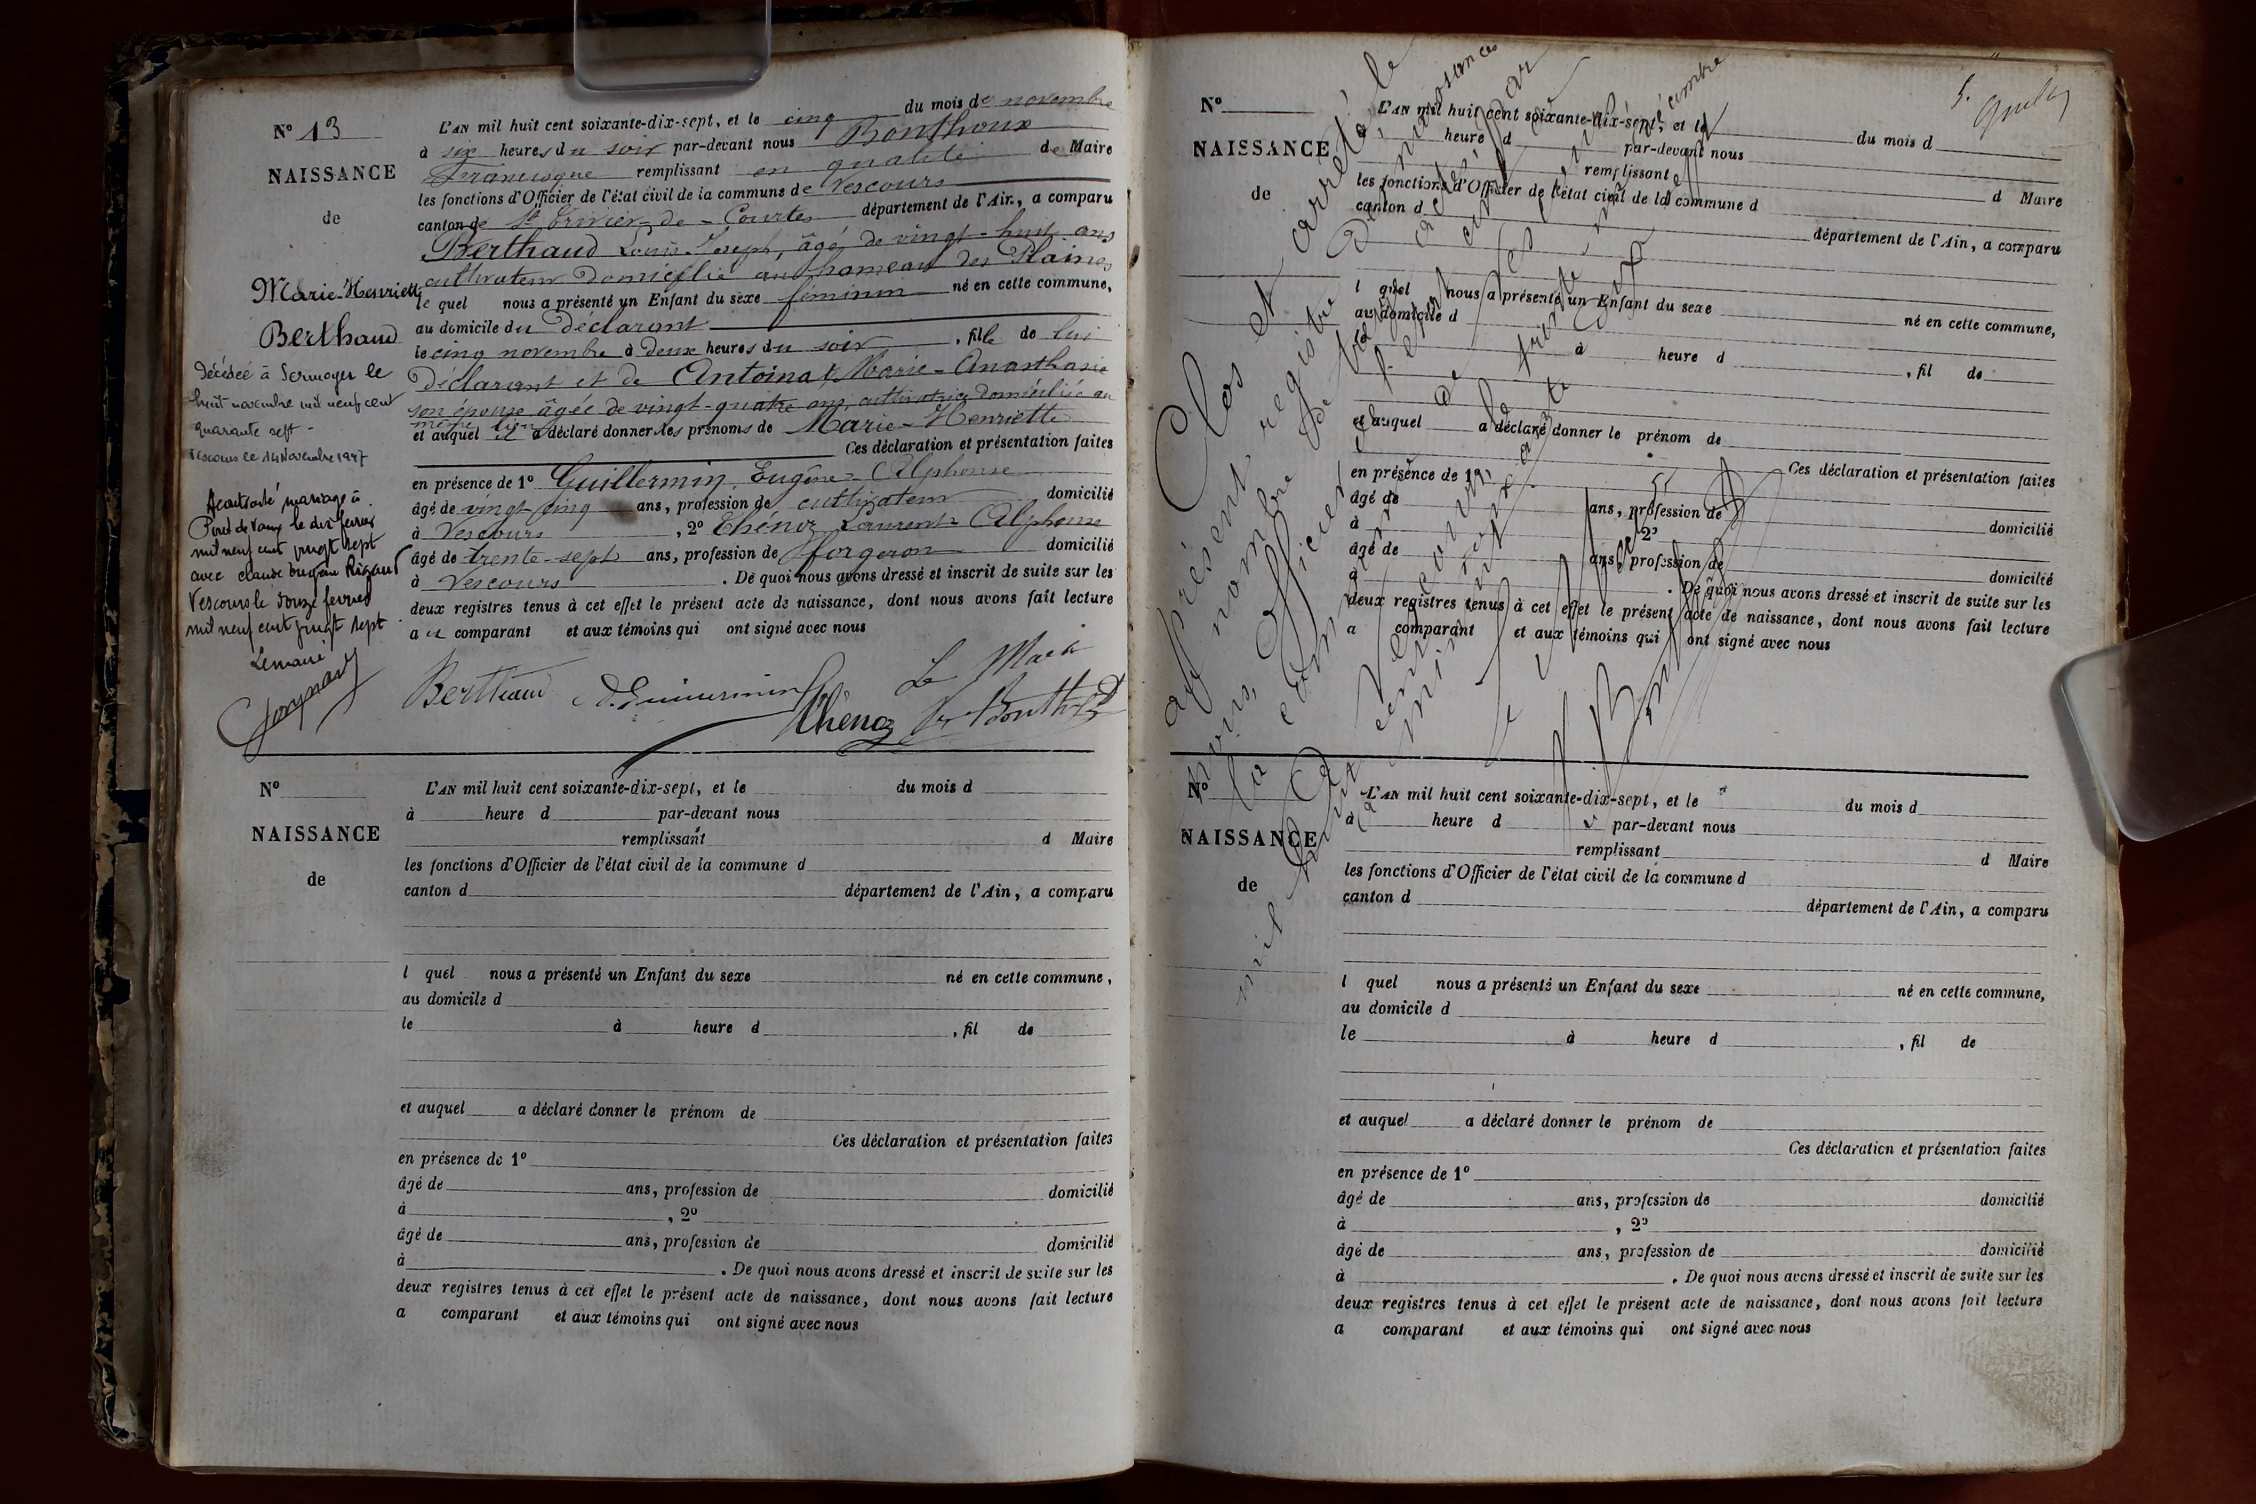 N° 13
NAISSANCE
de
Marie-Henriette
Berthaud
Décédée à Sermoyer le
huit novembre mil neuf cent
quarante sept -
Vescours le 14 Novembre 1947
A contracté mariage à
Pont de Vaux le dix février
mil neuf cent vingt sept
avec Claude Rigaud
Vescours le douze février
mil neuf cent vingt sept
Le maire
L'AN mil huit cent soixante-dix-sept, et le cinq du mois de novembre
à six heures du soir par-devant nous Bonthoux
Francisque remplissant en qualité de Maire
les fonctions d'Officier de l'état civil de la commune de Vescours
canton de St Trivier-de-Courtes département de l'Ain, a comparu
Berthaud Louis Joseph, âgé de vingt-huit ans
cultivateur domicilié au hameau des Plaines
le quel nous a présenté un Enfant du sexe féminin né en cette commune,
au domicile du Déclarant
le cinq novembre à deux heures du soir, fille de lui
Déclarant et de Antoinat Marie-Anasthasie
son épouse âgée de vingt-quatre ans, cultivatrice domiciliée au
même lieu
et auquel il a déclaré donner les prénoms de Marie-Henriette
Ces déclaration et présentation faites
en présence de 1° Guillermin, Eugène-Alphonse
âgé de vingt-cinq ans, profession de cultivateur domicilié
à Vescours, 2° Thénoz Laurent-Alphonse
âgé de trente-sept ans, profession de forgeron domicilié
à Vescours. De quoi nous avons dressé et inscrit de suite sur les
deux registres tenus à cet effet le présent acte de naissance, dont nous avons fait lecture
au comparant et aux témoins qui ont signé avec nous
Berthaud A. Guillermin Thénoz Le Maire
Fr Bonthoux
N°
NAISSANCE
de
L'AN mil huit cent soixante-dix-sept, et le du mois d
à heure d par-devant nous
remplissant d Maire
les fonctions d'Officier de l'état civil de la commune d
canton d département de l'Ain, a comparu
l quel nous a présenté un Enfant du sexe né en cette commune,
au domicile d
le à heure d , fil de
et auquel a déclaré donner le prénom de
Ces déclaration et présentation faites
en présence de 1°
âgé de ans, profession de domicilié
à , 2°
âgé de ans, profession de domicilié
à . De quoi nous avons dressé et inscrit de suite sur les
deux registres tenus à cet effet le présent acte de naissance, dont nous avons fait lecture
a comparant et aux témoins qui ont signé avec nous
5.
N°
NAISSANCE
de
L'AN mil huit cent soixante-dix-sept, et le du mois d
à heure d par-devant nous
remplissant d Maire
les fonctions d'Officier de l'état civil de la commune d
canton d département de l'Ain, a comparu
l quel nous a présenté un Enfant du sexe né en cette commune,
au domicile d
le à heure d , fil de
et auquel a déclaré donner le prénom de
Ces déclaration et présentation faites
en présence de 1°
âgé de ans, profession de domicilié
à , 2°
âgé de ans, profession de domicilié
à . De quoi nous avons dressé et inscrit de suite sur les
deux registres tenus à cet effet le présent acte de naissance, dont nous avons fait lecture
a comparant et aux témoins qui ont signé avec nous
Clos et arrêté le
présent registre Des naissances
au nombre de treize actes par
nous, Officier de l'état civil de
la commune de Vescours, le trente un Décembre
mil huit cent soixante
Le Maire
N°
NAISSANCE
de
L'AN mil huit cent soixante-dix-sept, et le du mois d
à heure d par-devant nous
remplissant d Maire
les fonctions d'Officier de l'état civil de la commune d
canton d département de l'Ain, a comparu
l quel nous a présenté un Enfant du sexe né en cette commune,
au domicile d
le à heure d , fil de
et auquel a déclaré donner le prénom de
Ces déclaration et présentation faites
en présence de 1°
âgé de ans, profession de domicilié
à , 2°
âgé de ans, profession de domicilié
à . De quoi nous avons dressé et inscrit de suite sur les
deux registres tenus à cet effet le présent acte de naissance, dont nous avons fait lecture
a comparant et aux témoins qui ont signé avec nous